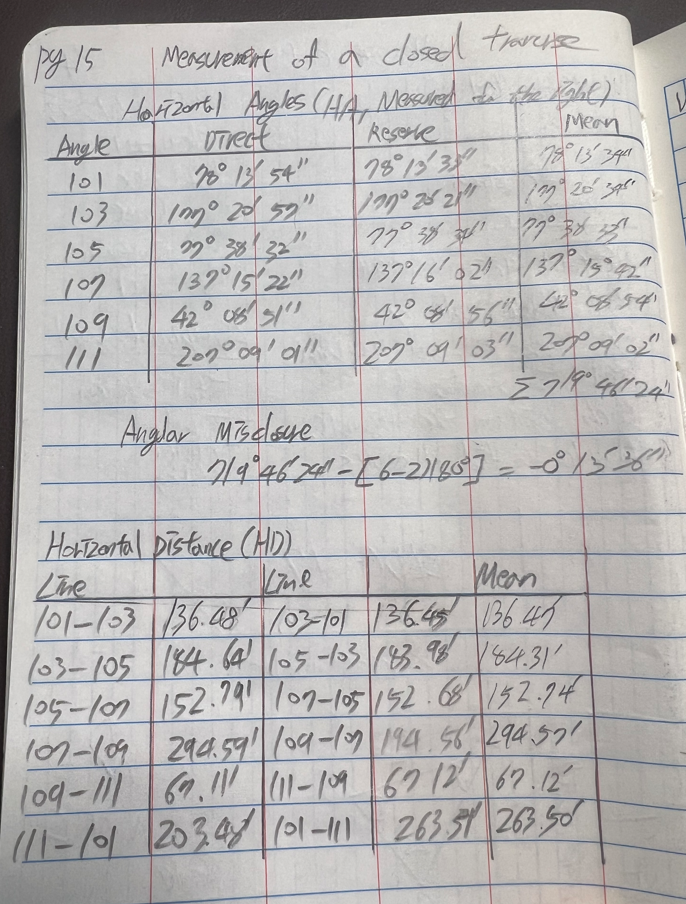 pg 15 Measurement of a closed traverse
Horizontal Angles (HA, Measured to the right)
Angle Direct Reserve Mean
101 78° 13' 54" 78° 13' 33" 78° 13' 34"
103 177° 20' 57" 177° 20' 21" 177° 20' 39"
105 77° 38' 32" 77° 38' 34" 77° 38' 33"
107 137° 15' 22" 137° 16' 02" 137° 15' 42"
109 42° 08' 51" 42° 08' 56" 42° 08' 54"
111 207° 09' 01" 207° 09' 03" 207° 09' 02"
Σ 719° 46' 24"
Anglar Misclosure
719° 46' 24" - [6-2)180°] = -0° 13' 36"
Horizontal Distance (HD)
Line Line Mean
101-103 136.48' 103-101 136.45' 136.47'
103-105 184.64' 105-103 183.98' 184.31'
105-107 152.79' 107-105 152.68' 152.74'
107-109 294.59' 109-107 194.56' 294.57'
109-111 67.11' 111-109 67.12' 67.12'
111-101 203.48' 101-111 263.51' 263.50'